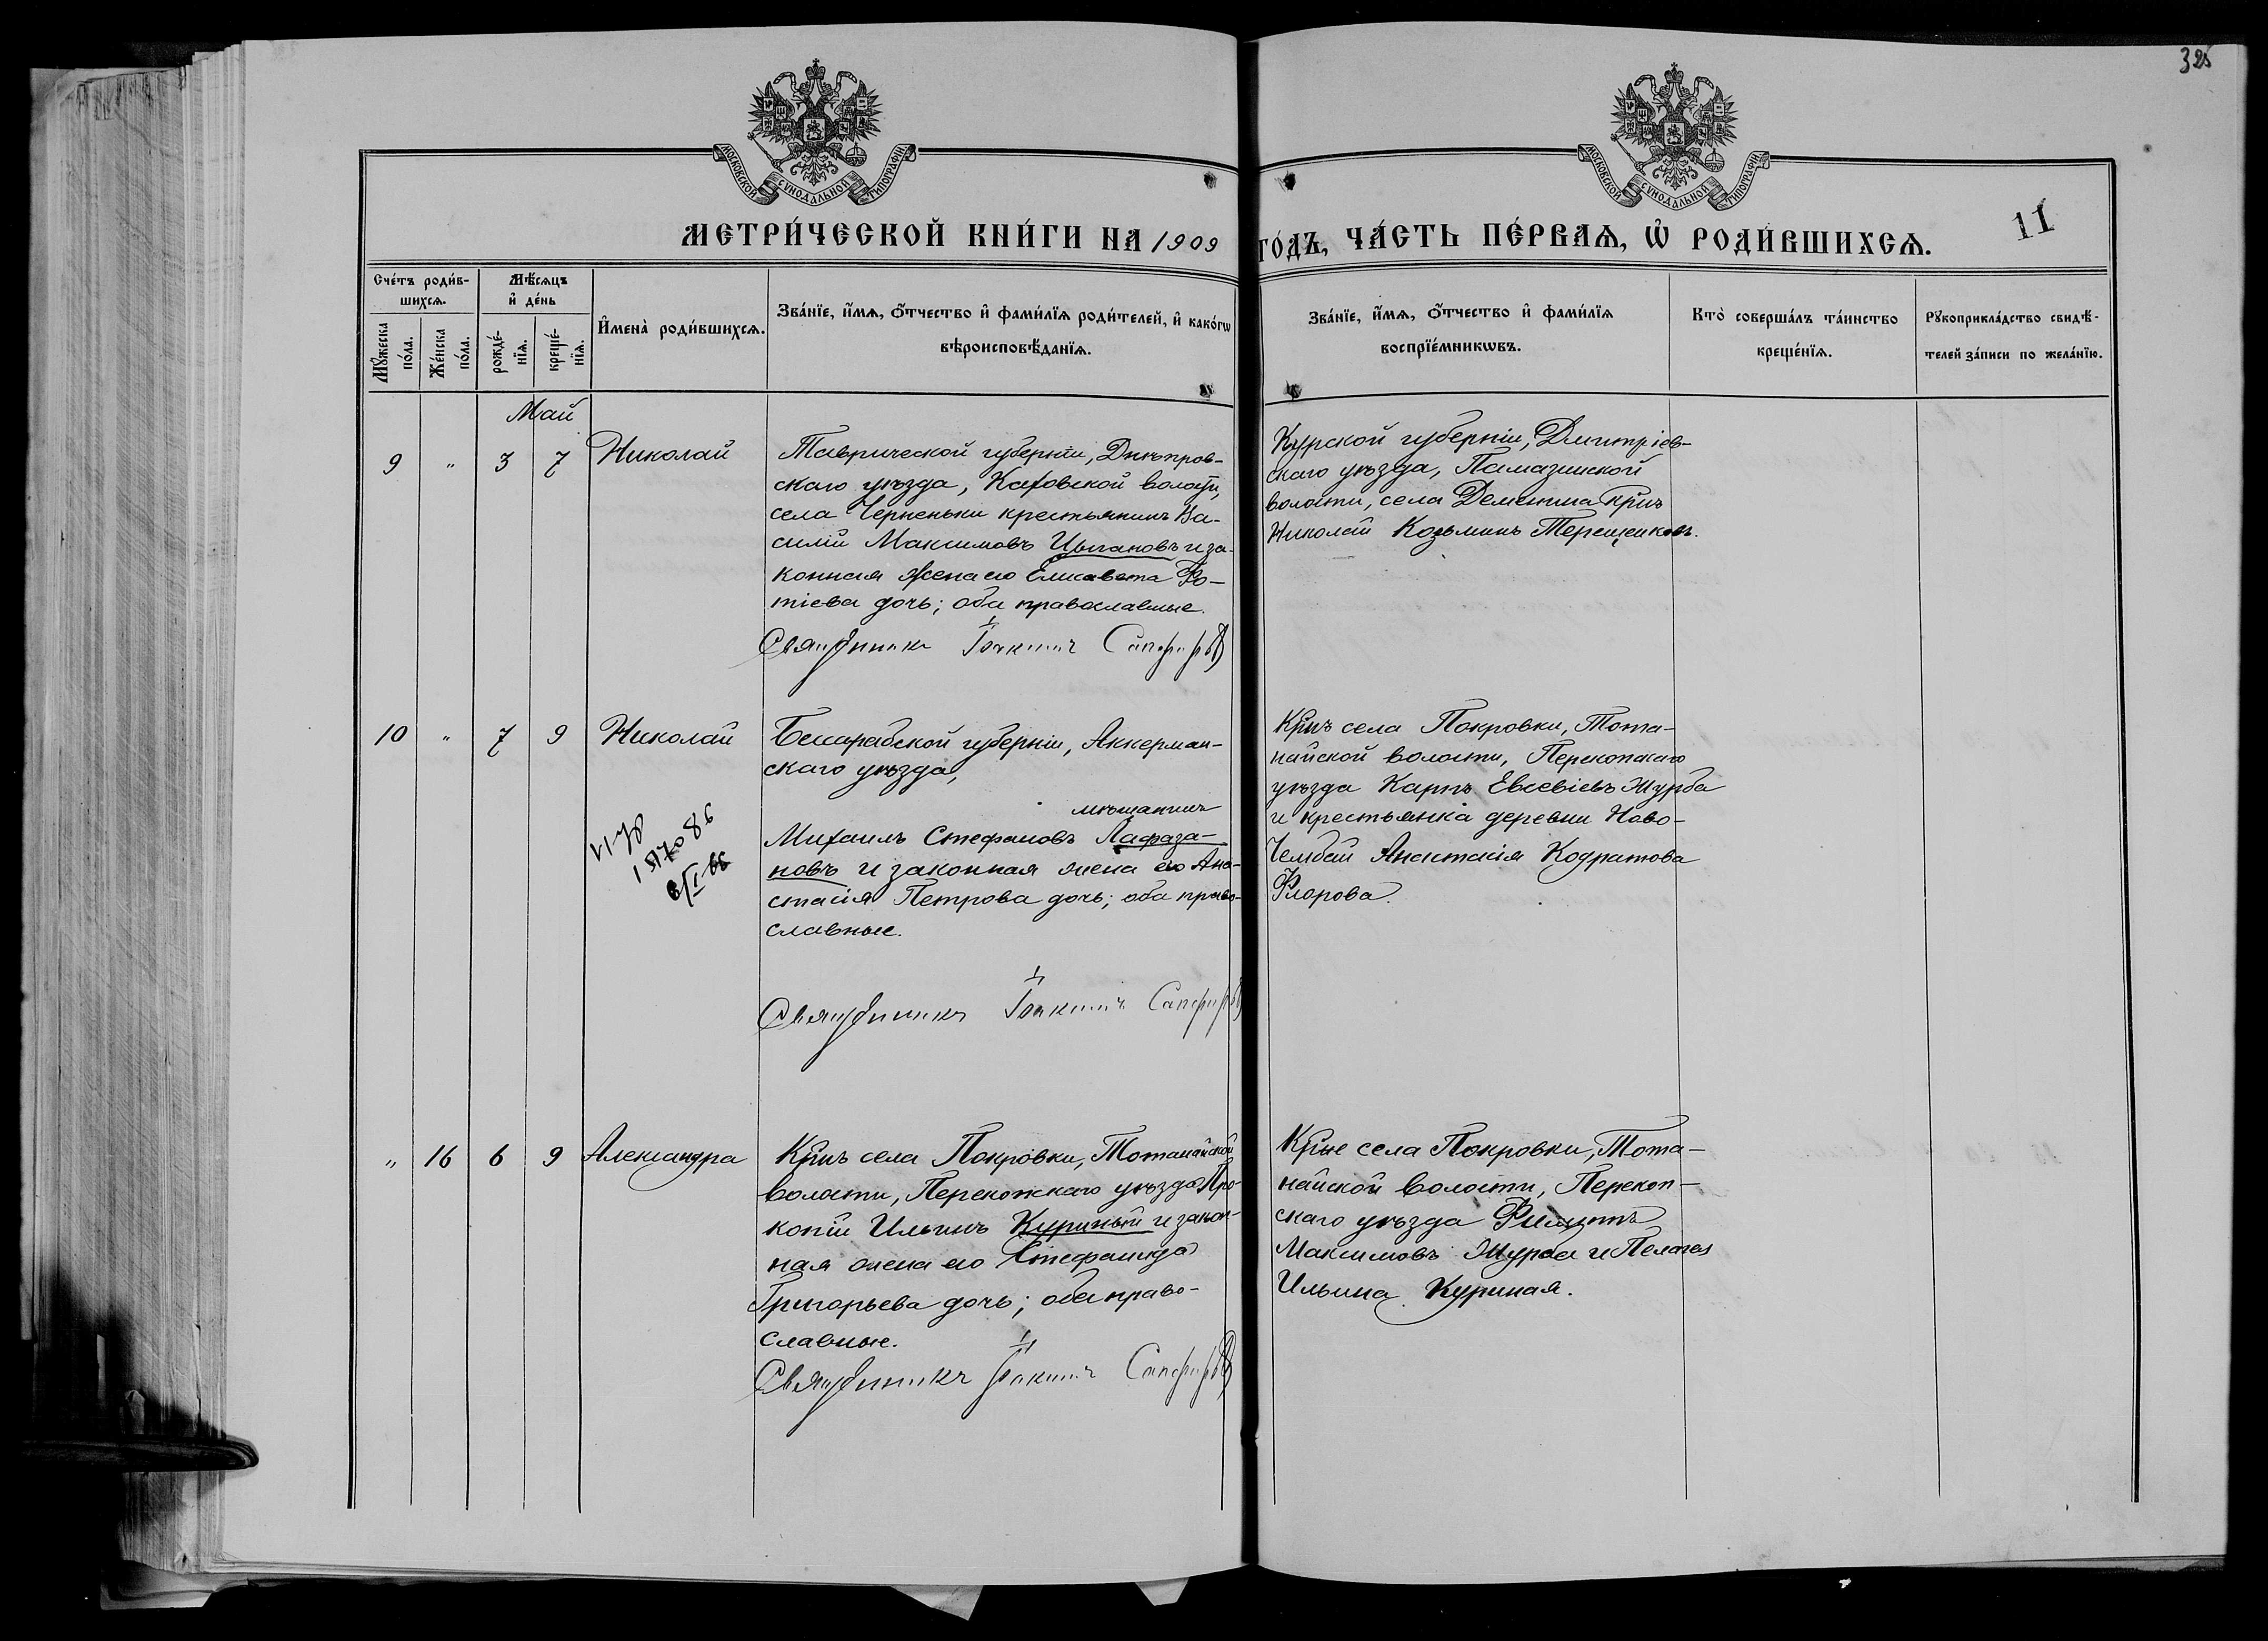 325
МОСКОВСКОЙ СѴНОДАЛЬНОЙ ТИПОГРАФІИ
МОСКОВСКОЙ СѴНОДАЛЬНОЙ ТИПОГРАФІИ
МЕТРИ́ЧЕСКОЙ КНИ́ГИ НА 1909 ГО́ДЪ, ЧА́СТЬ ПЕ́РВАѦ, Ѡ҆ РОДИ́ВШИХСѦ.
11
Сче́тъ роди́в-
шихсѧ.
Мꙋ́жеска по́ла.
Же́нска по́ла.
Мѣ́сѧцъ
и҆ де́нь
рожде́-
нїѧ.
креще́-
нїѧ.
И҆мена̀ роди́вшихсѧ.
Зва́нїе, и҆́мѧ, ѻ҆́тчество и҆ фами́лїѧ роди́телей, и҆ како́гѡ
вѣроисповѣ́данїѧ.
Зва́нїе, и҆́мѧ, ѻ҆́тчество и҆ фами́лїѧ
воспрїе́мникѡвъ.
Кто̀ соверша́лъ та́инство
креще́нїѧ.
Рꙋкоприкла́дство свидѣ́-
телей за́писи по жела́нїю.
Май
9 " 3 7 Николай
Таврической губерніи, Днѣпров-
скаго уѣзда, Каховской волости,
села Черненьки крестьянинъ Ва-
силій Максимовъ Цыгановъ и за-
конная жена его Елисавета Фо-
тіева дочь; оба православные.
Священникъ Іоакимъ Сапфировъ
Курской губерніи, Дмитріев-
скаго уѣзда,
волости, села Дементина кр̃нъ
Николай Козьминъ Терещенковъ.
10 " 7 9 Николай
Бессарабской губерніи, Аккерман-
скаго уѣзда,
мѣщанинъ
Михаилъ Стефановъ Лафаза-
новъ и законная жена его Ана-
стасія Петрова дочь; оба право-
славные.
Священникъ Іоакимъ Сапфировъ
Кр̃нъ села Покровки, Тота-
найской волости, Перекопскаго
уѣзда Карпъ Евсевіевъ Журба
и крестьянка деревни Ново-
Чембай Анастасія Кодратова
Флорова.
" 16 6 9 Александра
Кр̃нъ села Покровки, Тотанайской
волости, Перекопскаго уѣзда Про-
копій Ильинъ Куриный и закон-
ная жена его Стефанида
Григорьева дочь; оба право-
славные.
Священникъ Іоакимъ Сапфировъ
Кр̃не села Покровки, Тота-
найской волости, Перекоп-
скаго уѣзда Филиппъ
Максимовъ Журба и Пелагея
Ильина Куриная.